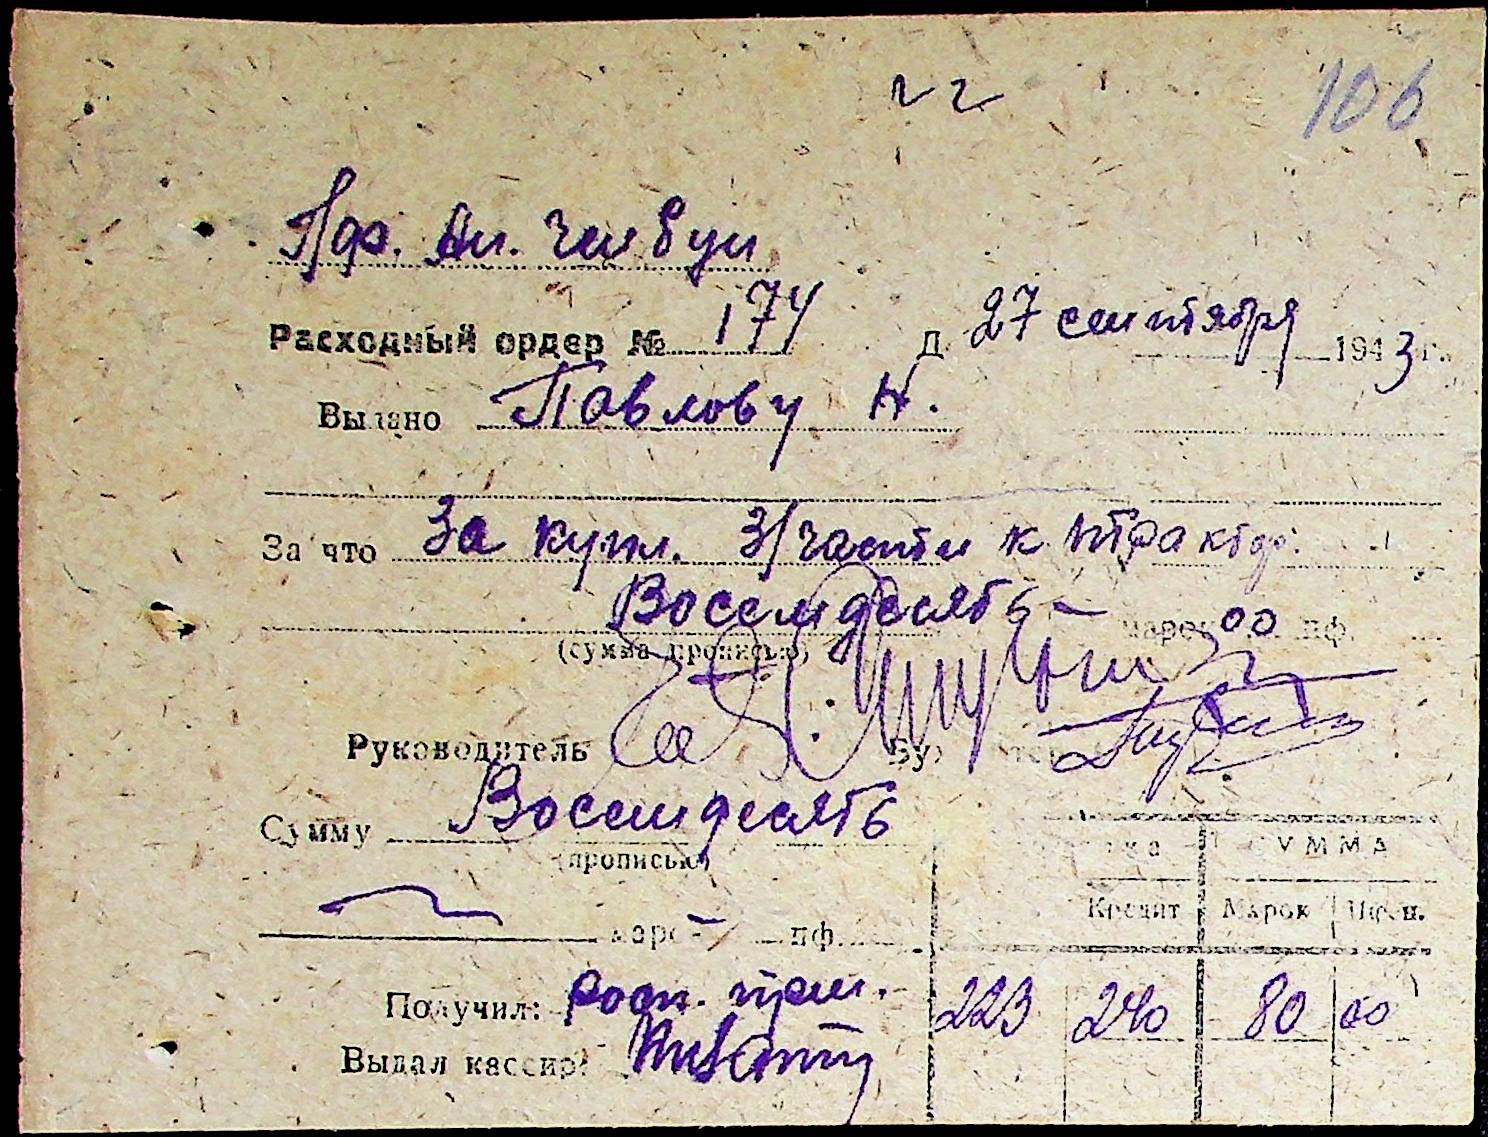 106
Расходный ордер № 174 Д 27 сентября 1943 г.
Выдано Павлову Н.
За что За купл. з/части к трактор.
Восемдесять — марок 00 пф.
(сумма прописью)
Руководитель
Сумму Восемдесять
(прописью)
СУММА
Кредит Марок Пфен.
марок — пф.
Получил: росп. прил. 223 240 80 00
Выдал кассир